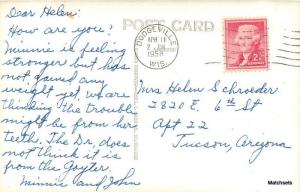 Dear Helen:
How are you?
Minnie is feeling
stronger but has
not gained any
weight yet. We are
thinking the trouble
might be from her
teeth. The Dr. does
not think it is
from the Goyter.
Minnie and John
POST CARD
DODGEVILLE
APR 11
1958
WIS.
2¢
Mrs Helen Schroeder
2820 E. 6th St
Apt 22
Tucson, Arizona
Matchsets